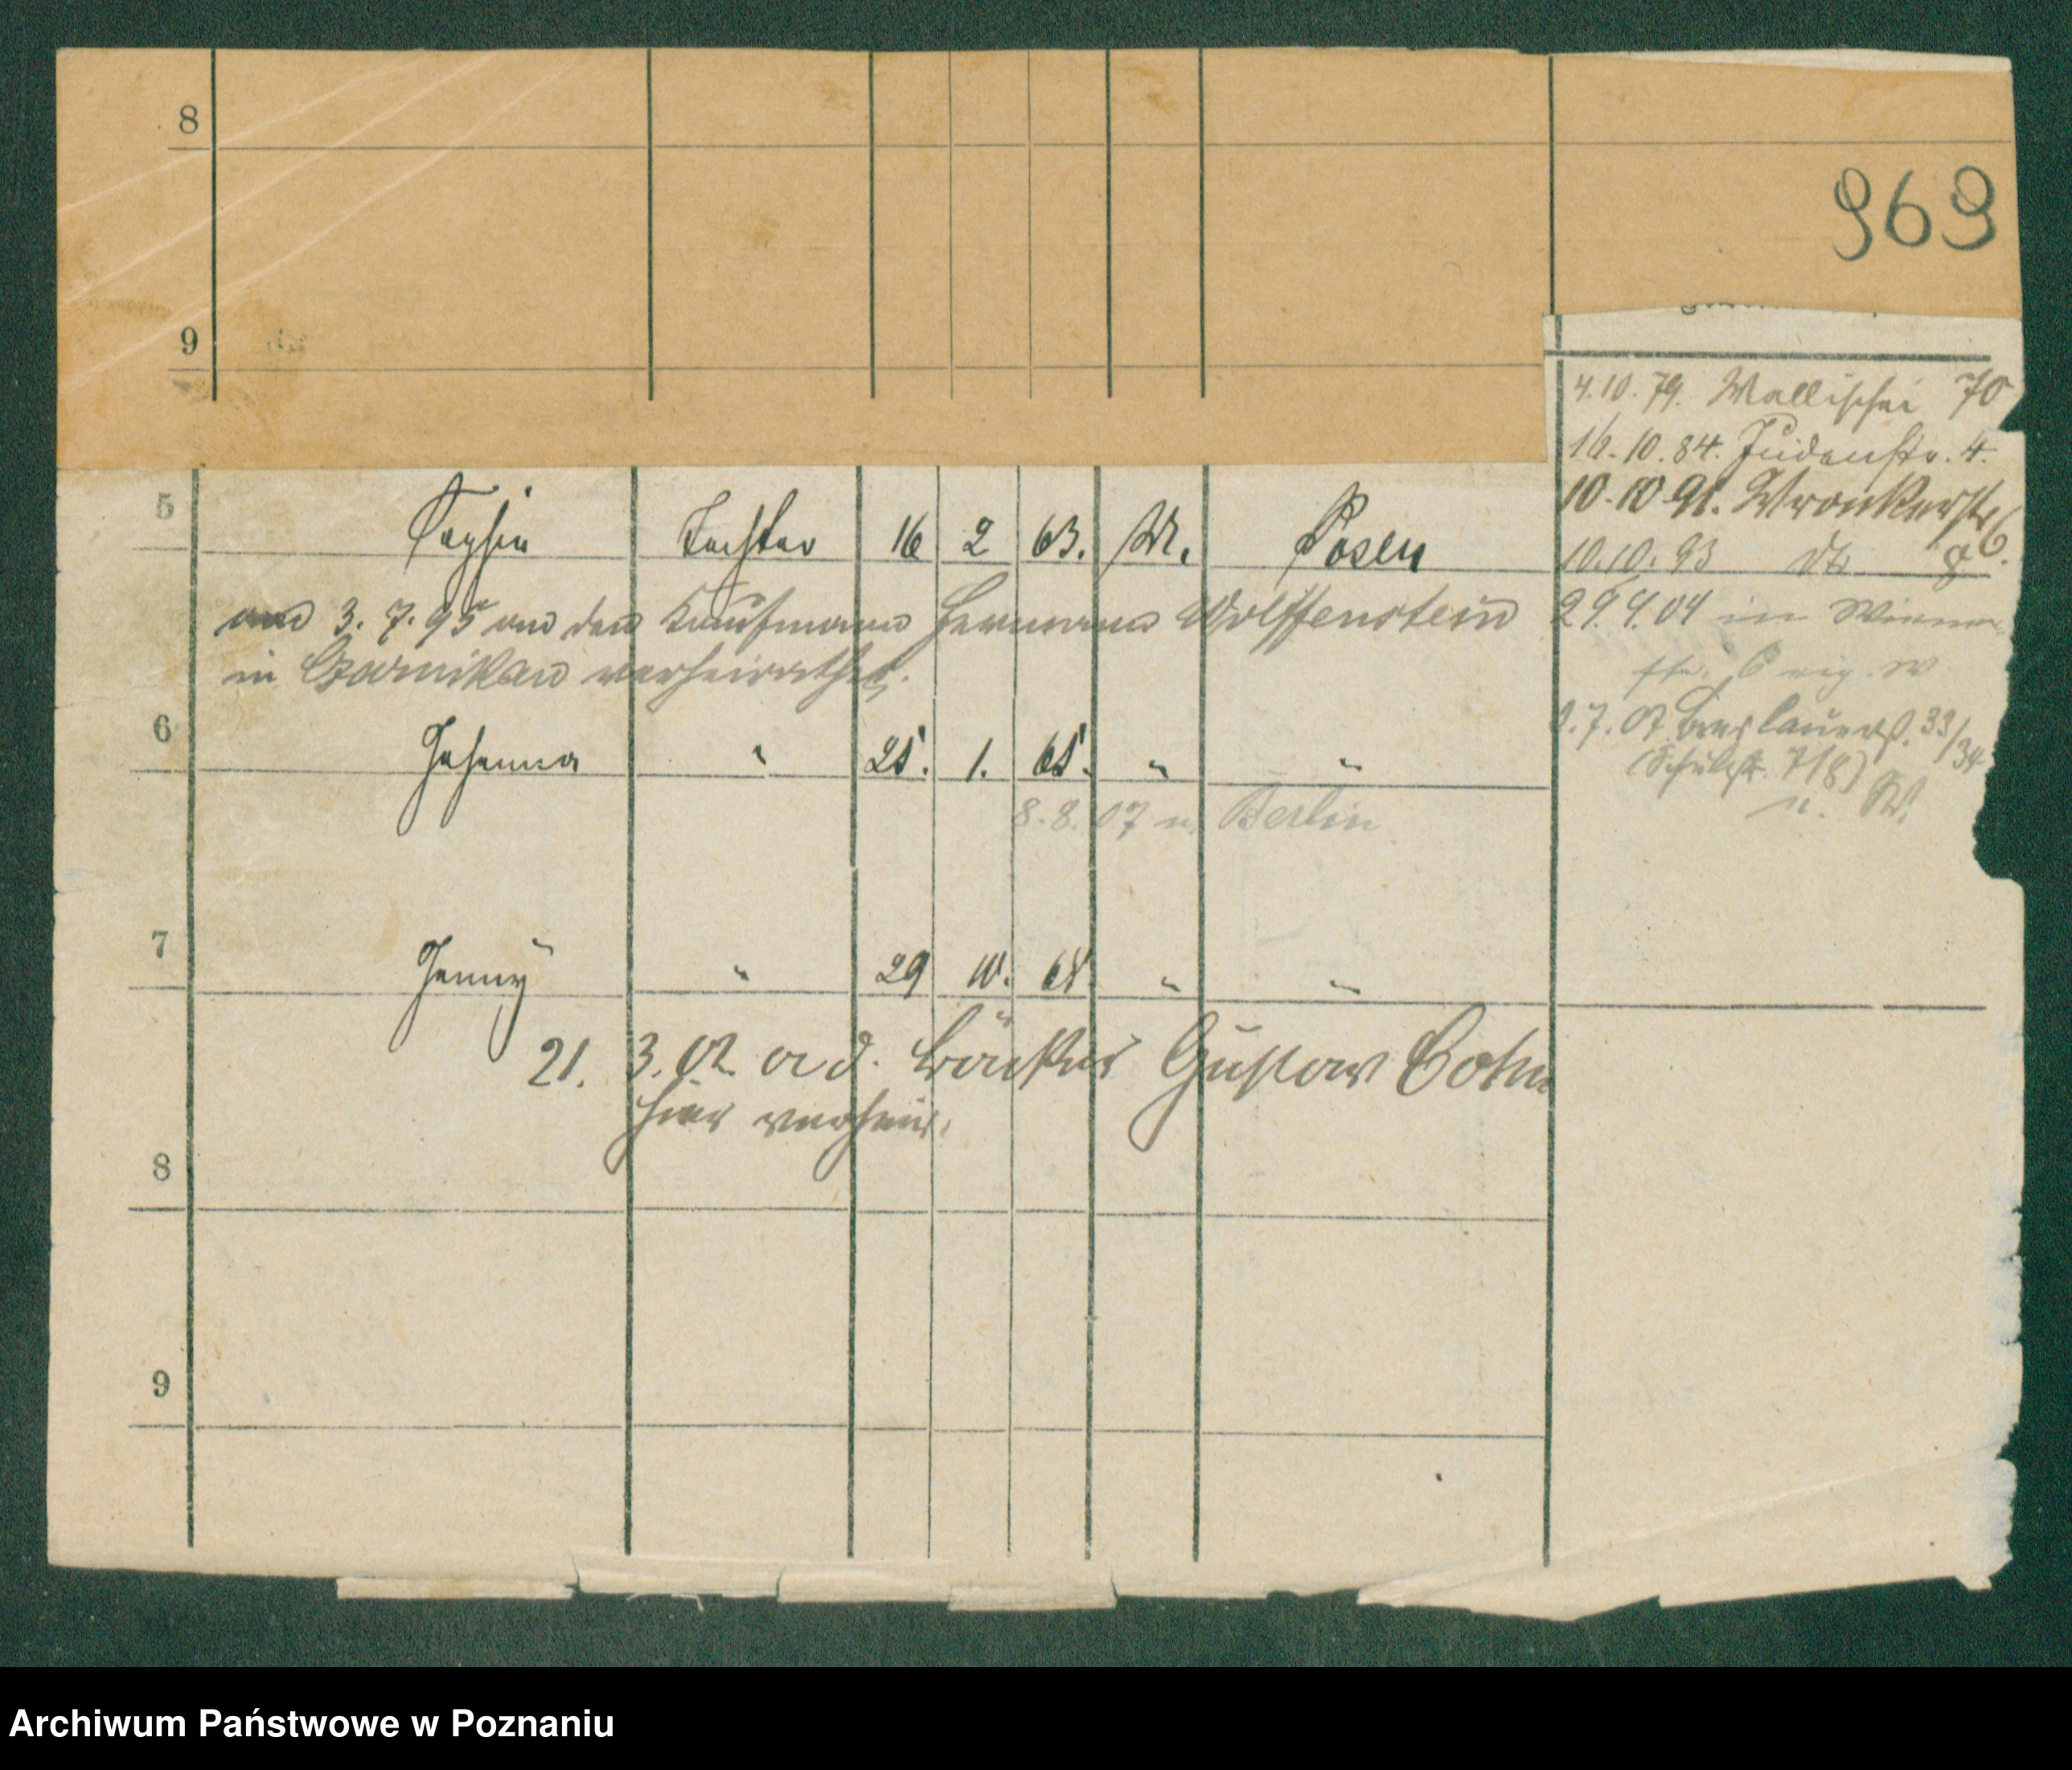 8
969
9
4.10.79. Wallischei 70
16.10.84. Judenstr. 4.
10.10.91. Wronkerstr 6.
10.10.93 dto 8
29.9.04 in
5 Sophie Tochter 16 2 63. M. Posen
am 3.7.95 an den Kaufmann Hermann Wolffenstein
in Czarnikau verheirathet.
7.07 Breslauerst. 33/34
(Schulstr. 7/8)
6 Johanna " 25. 1. 65. " "
8.8.07 n. Berlin
7 Jenny " 29 10. 68 " "
21. 3. 02 a d. Bäcker Gustav Cohn
hier verheir.
8
9
Archiwum Państwowe w Poznaniu